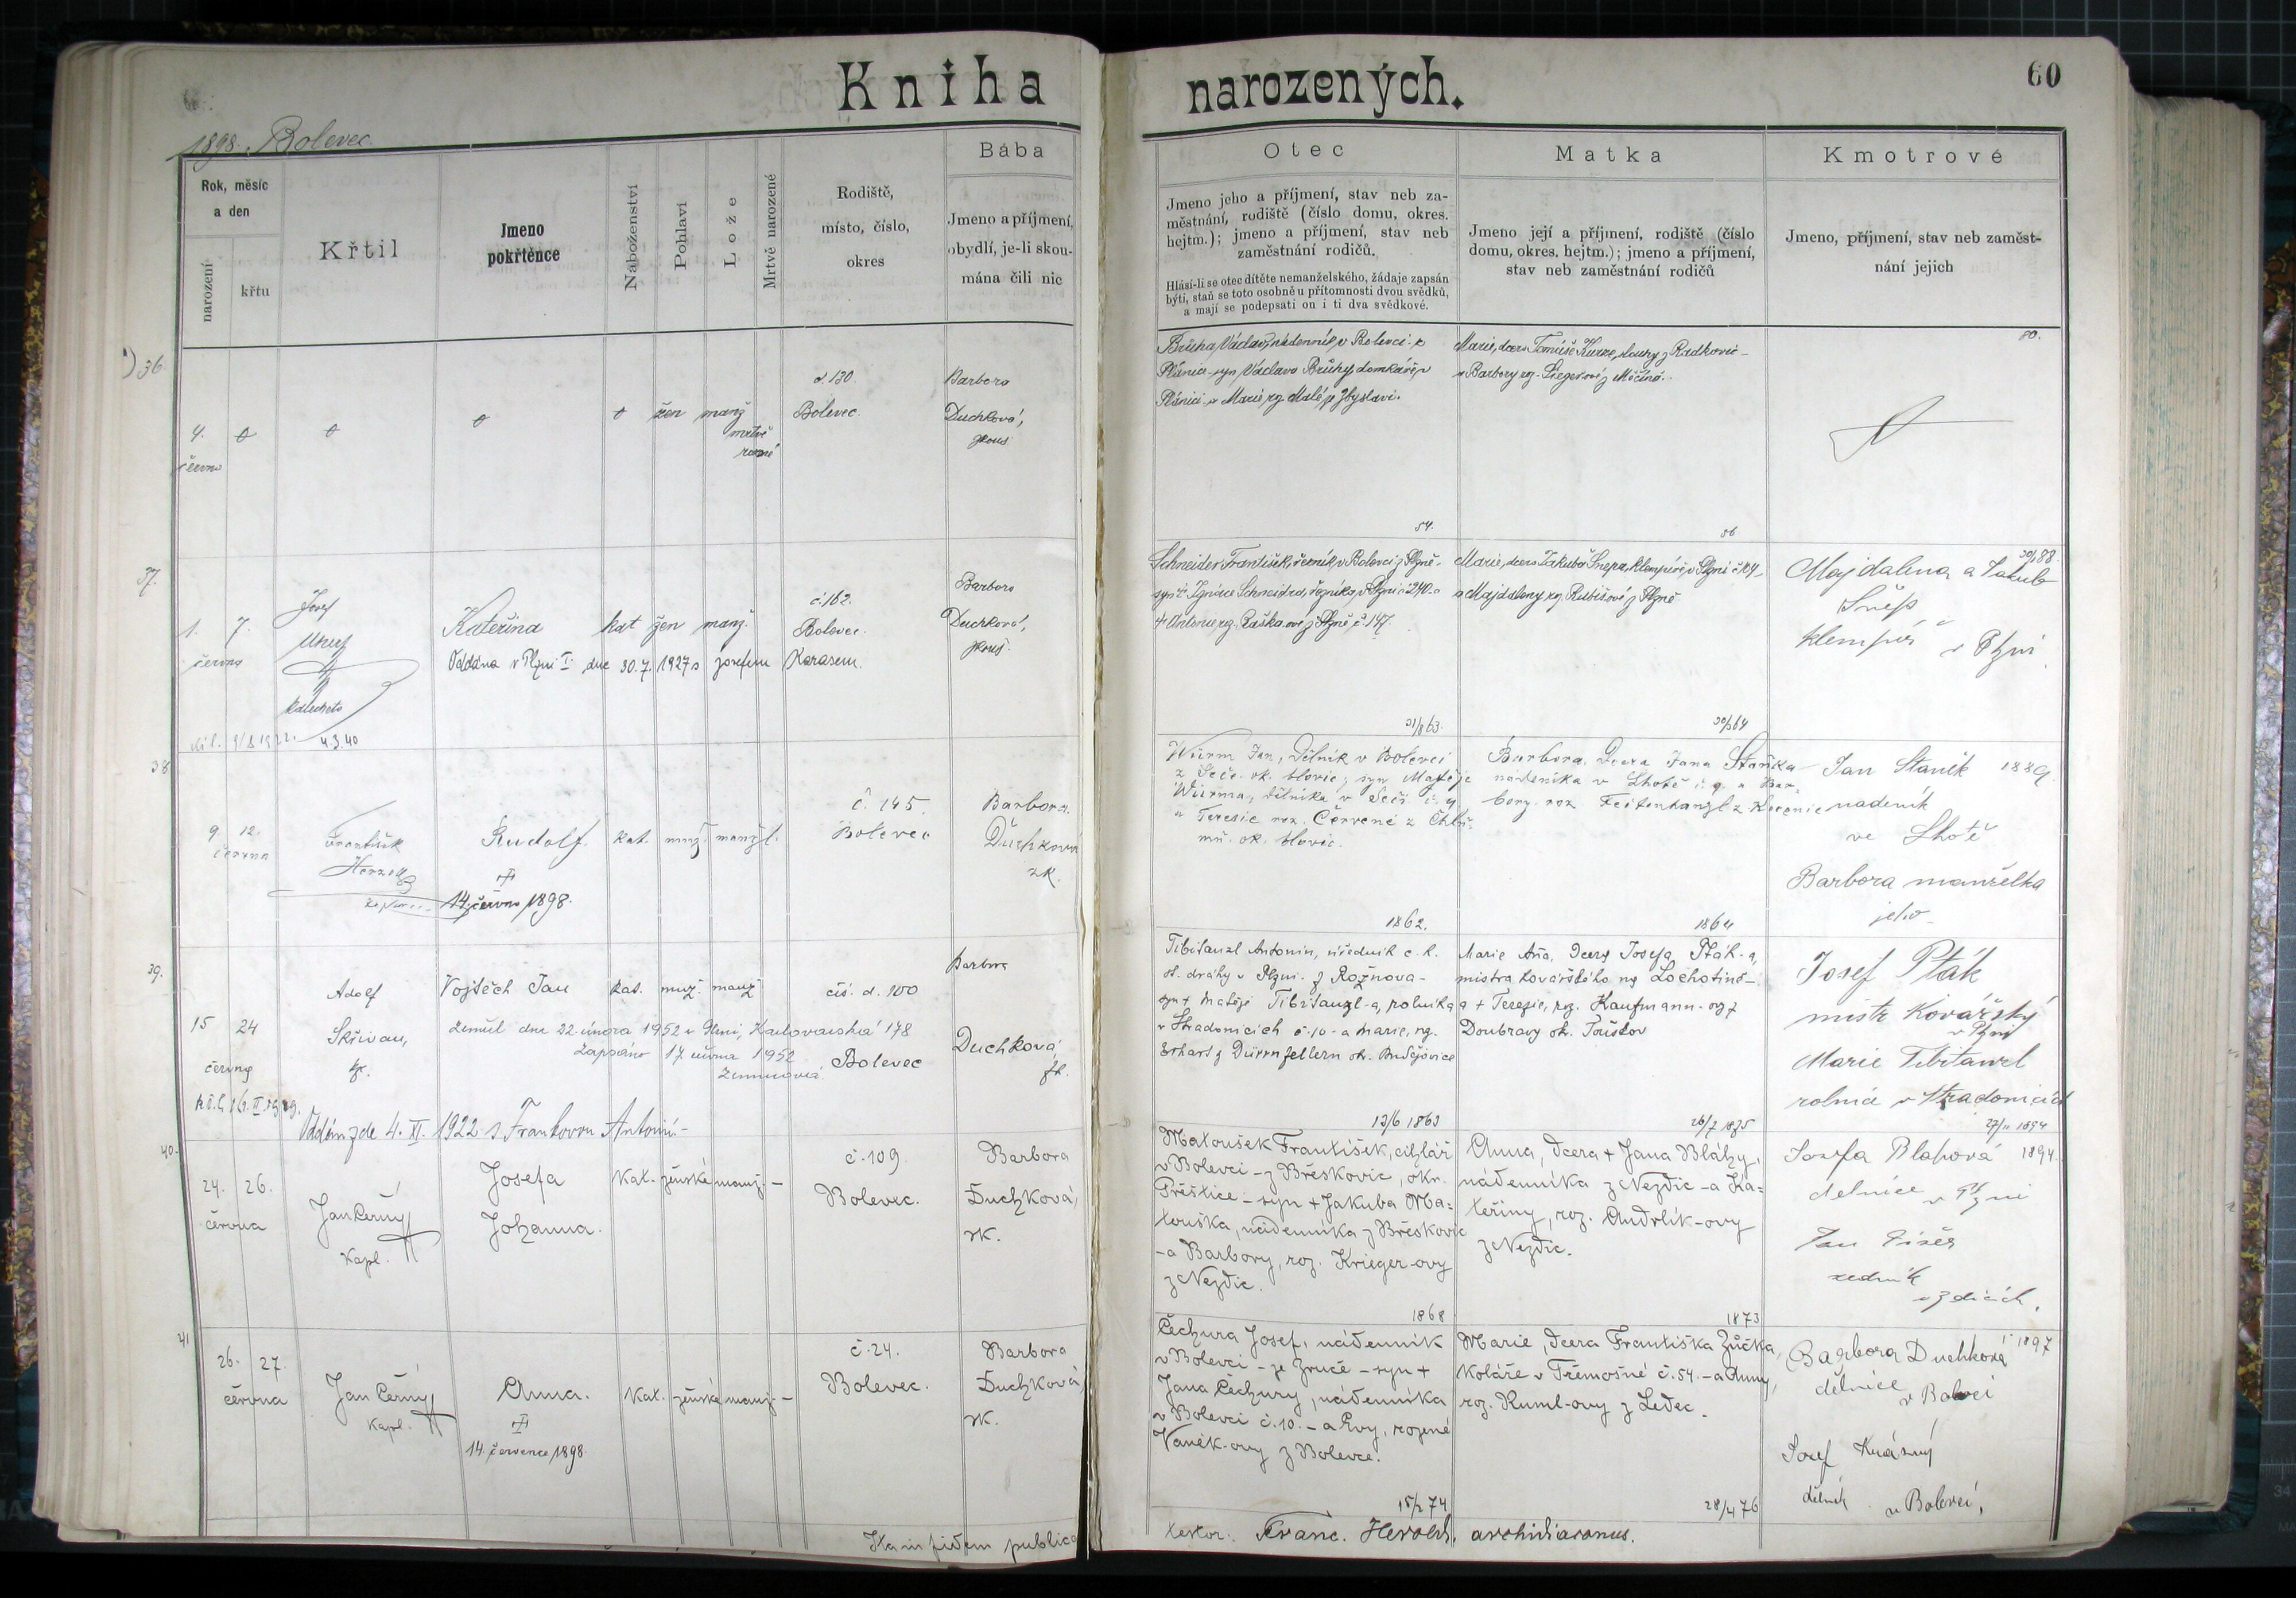 Kniha narozených.
60
1898. Bolevec.
Rok, měsíc a den
narození
křtu
Křtil
Jmeno pokřtěnce
Náboženství
Pohlaví
Lože
Mrtvě narozené
Rodiště,
místo, číslo,
okres
Bába
Jmeno a příjmení,
obydlí, je-li skou-
mána čili nic
Otec
Jmeno jeho a příjmení, stav neb za-
městnání, rodiště (číslo domu, okres.
hejtm.); jmeno a příjmení, stav neb
zaměstnání rodičů.
Hlásí-li se otec dítěte nemanželského, žádaje zapsán
býti, staň se toto osobně u přítomnosti dvou svědků,
a mají se podepsati on i ti dva svědkové.
Matka
Jmeno její a příjmení, rodiště (číslo
domu, okres. hejtm.); jmeno a příjmení,
stav neb zaměstnání rodičů
Kmotrové
Jmeno, příjmení, stav neb zaměst-
nání jejich
36.
4.
června
žen manž
mrtvě
č. 130
Bolevec.
Barbora
Duchková,
zkouš
Brůha Václav, nádenník v Bolevci z
Plánice - syn Václava Brůhy, domkáře v
Plánici a Marie, rz. Malé z Zbyslavi.
54.
Marie, dcera Tomáše Kurze, sluhy z Radkovic -
a Barbory rz.
56
80.
37.
1. 7.
června
Josef
katecheta
Kateřina
kat žen manž.
Oddána v Plzni I. dne 30.7.1927 s Josefem Karasem.
4.3.40
č. 162.
Bolevec.
Barbora
Duchková,
zkouš.
Schneider František, řezník v Bolevci z Plzně -
syn Ignáce Schneidra, řezníka v Plzni č 240 a
č. 147.
31/8 63.
Marie, dcera Jakuba Šnepa, klempíře v Plzni č 104 -
a Majdaleny rz. Rubišové z Plzně
30/3 64
30/1 88.
Majdalena a Jakub
Šnep
klempíř v Plzni
38
9. 12.
června
František
Herzog
Rudolf.
14. června 1898.
kat. muž. manžl.
č. 145.
Bolevec
Barbora
Duchková
zk.
Würm Jan, dělník v Bolevci
z Seče ok. Blovic, syn Matěje
Würma, dělníka v Seči č. 4
a Terezie roz. Červené z Chlu-
mu. ok. Blovic.
1862.
Barbora, dcera Jana Staňka
nádeníka v Lhotě č. 9. a Bar-
bory roz.
1864
Jan Staněk 1889.
nadeník
ve Lhotě
Barbora manželka
jeho
39.
15 24
června
Adolf
Skřivan,
k.
Vojtěch Jan
kat. muž. manž
Zemřel dne 22. února 1952 v Plzni, Karlovarská 178
Zapsáno 17. června 1952
Oddán zde 4. XI. 1922 s Frankovou Antonií -
čís. d. 100
Bolevec
Barbora
Duchková
zk.
Tibitanzl Antonín, úředník c. k.
st. dráhy v Plzni. z Rožnova -
syn + Matěje Tibitanzl-a, rolníka
v Stradonicích č. 10 - a Marie, rz.
Erhart z Dürrnfellern ok. Budějovice
13/6 1863
Marie Aña, dcera Josefa Pták-a,
mistra kovářského na Lochotíně -
a + Terezie, roz. Kaufmann-ov z
Doubravy ok. Toužkov
26/7 1875
Josef Pták
mistr kovářský
v Plzni
Marie Tibitanzl
rolnice v Stradonicích
27/11 1894
40.
24. 26.
června
Jan Černý
Kapl.
Josefa
Johanna.
Kat. ženské manž. -
č. 109.
Bolevec.
Barbora
Duchková,
zk.
Matoušek František, cihlář
v Bolevci - z Břeskovic, okr.
Přeštice - syn + Jakuba Ma-
touška, nádenníka z Břeskovic
- a Barbory, roz. Krieger-ovy
z Nezdic.
1868
Anna, dcera + Jana Bláhy,
nádenníka z Nezdic - a Ka-
teřiny, roz. Andrlík-ovy
z Nezdic.
1873
Josefa Blahová 1894.
dělnice v Plzni
Jan
zedník
41
26. 27.
června
Jan Černý
Kapl.
Anna.
14. července 1898.
Kat. ženské manž. -
č. 24.
Bolevec.
Barbora
Duchková,
zk.
Čechura Josef, nádenník
v Bolevci - ze Zruče - syn +
Jana Čechury, nádenníka
v Bolevci č. 10. - a Evy, rozené
Vaněk-ovy z Bolevce.
15/2 74
Marie, dcera Františka Žůčka,
koláře v Třemošné č. 54. - a Anny,
roz. Ruml-ovy z Ledec.
28/4 76
Barbora Duchková 1897
dělnice v Bolevci
Josef Krásný
dělník v Bolevci,
In fidem publica
testor. Franc. Herold, archidiaconus.